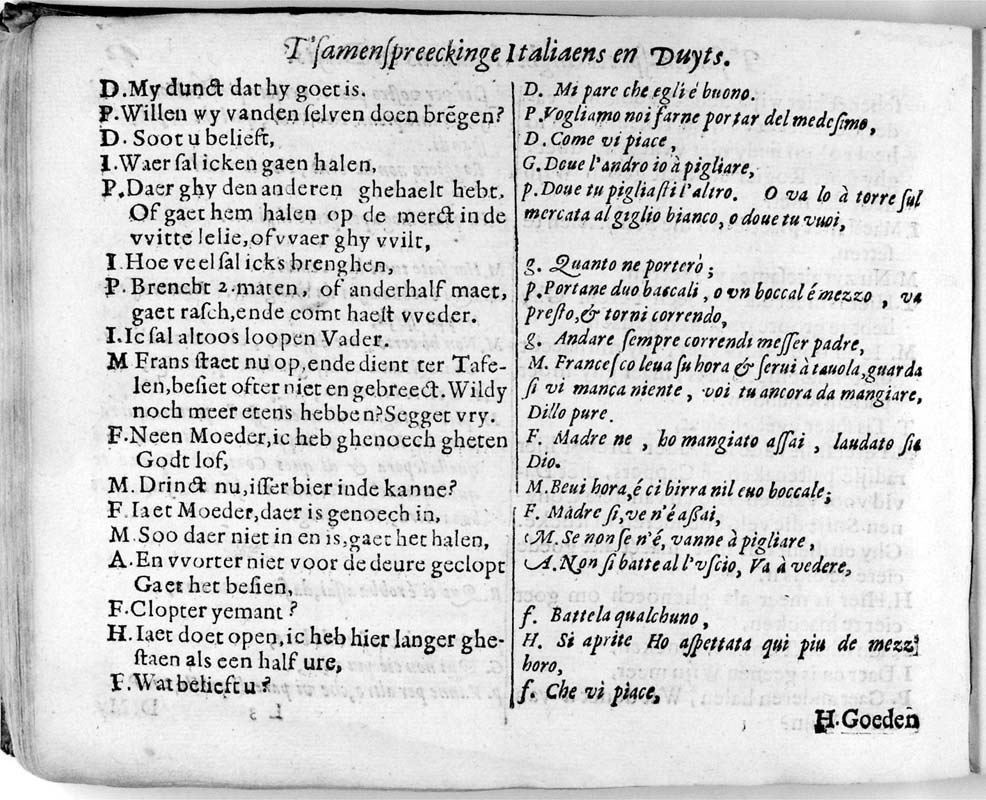 T'ſamenſpreeckinge Italiaens en Duyts.
D. My dunct dat hy goet is.
P. Willen wy vanden ſelven doen brẽgen?
D. Soot u belieft,
I. Waer ſal icken gaen halen,
P. Daer ghy den anderen ghehaelt hebt.
Of gaet hem halen op de merct in de
vvitte lelie, of vvaer ghy vvilt,
I. Hoe veel ſal icks brenghen,
P. Brencht 2. maten, of anderhalf maet,
gaet raſch, ende comt haeſt vveder.
I. Ic ſal altoos loopen Vader.
M Frans ſtaet nu op, ende dient ter Tafe-
len, beſiet ofter niet en gebreect. Wildy
noch meer etens hebben? Segget vry.
F. Neen Moeder, ic heb ghenoech gheten
Godt lof,
M. Drinct nu, iſſer bier inde kanne?
F. Iaet Moeder, daer is genoech in,
M. Soo daer niet in en is, gaet het halen,
A. En vvorter niet voor de deure geclopt
Gaet het beſien,
F. Clopter yemant?
H. Iaet doet open, ic heb hier langer ghe-
ſtaen als een half ure,
F. Wat belieft u?
D. Mi pare che egli é buono.
P. Vogliamo noi farne portar del medeſimo,
D. Come vi piace,
G. Doue l'andro io à pigliare,
p. Doue tu pigliaſti l'altro. O va lo à torre ſul
mercata al giglio bianco, o doue tu vuoi,
g. Quanto ne porterò;
p. Portane duo bascali, o vn boccal é mezzo, va
preſto, & torni correndo,
g. Andare ſempre correndi meſſer padre,
M. Franceſco leua ſu hora & ſerui à tauola, guarda
ſi vi manca niente, voi tu ancora da mangiare,
Dillo pure.
F. Madre ne, ho mangiato aſſai, laudato ſia
Dio.
M. Beui hora, é ci birra nil euo boccale;
F. Madre ſi, ve n'é aßai,
M. Se non ſe n'é, vanne à pigliare,
A. Non ſi batte al l'vſcio, Va à vedere,
f. Battela qualchuno,
H. Si aprite Ho aſpettata qui piu de mezz
horo,
f. Che vi piace,
H. Goeden